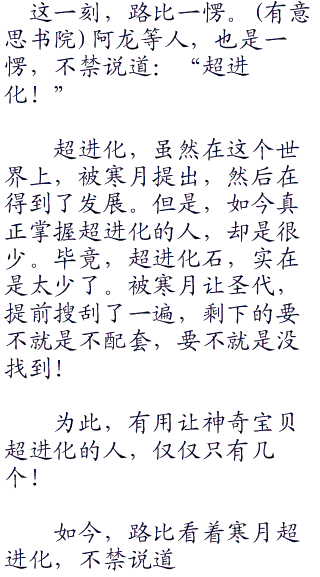 这一刻，路比一愣。(有意
思书院)阿龙等人，也是一
愣，不禁说道：“超进
化！”
超进化，虽然在这个世
界上，被寒月提出，然后在
得到了发展。但是，如今真
正掌握超进化的人，却是很
少。毕竟，超进化石，实在
是太少了。被寒月让圣代，
提前搜刮了一遍，剩下的要
不就是不配套，要不就是没
找到！
为此，有用让神奇宝贝
超进化的人，仅仅只有几
个！
如今，路比看着寒月超
进化，不禁说道